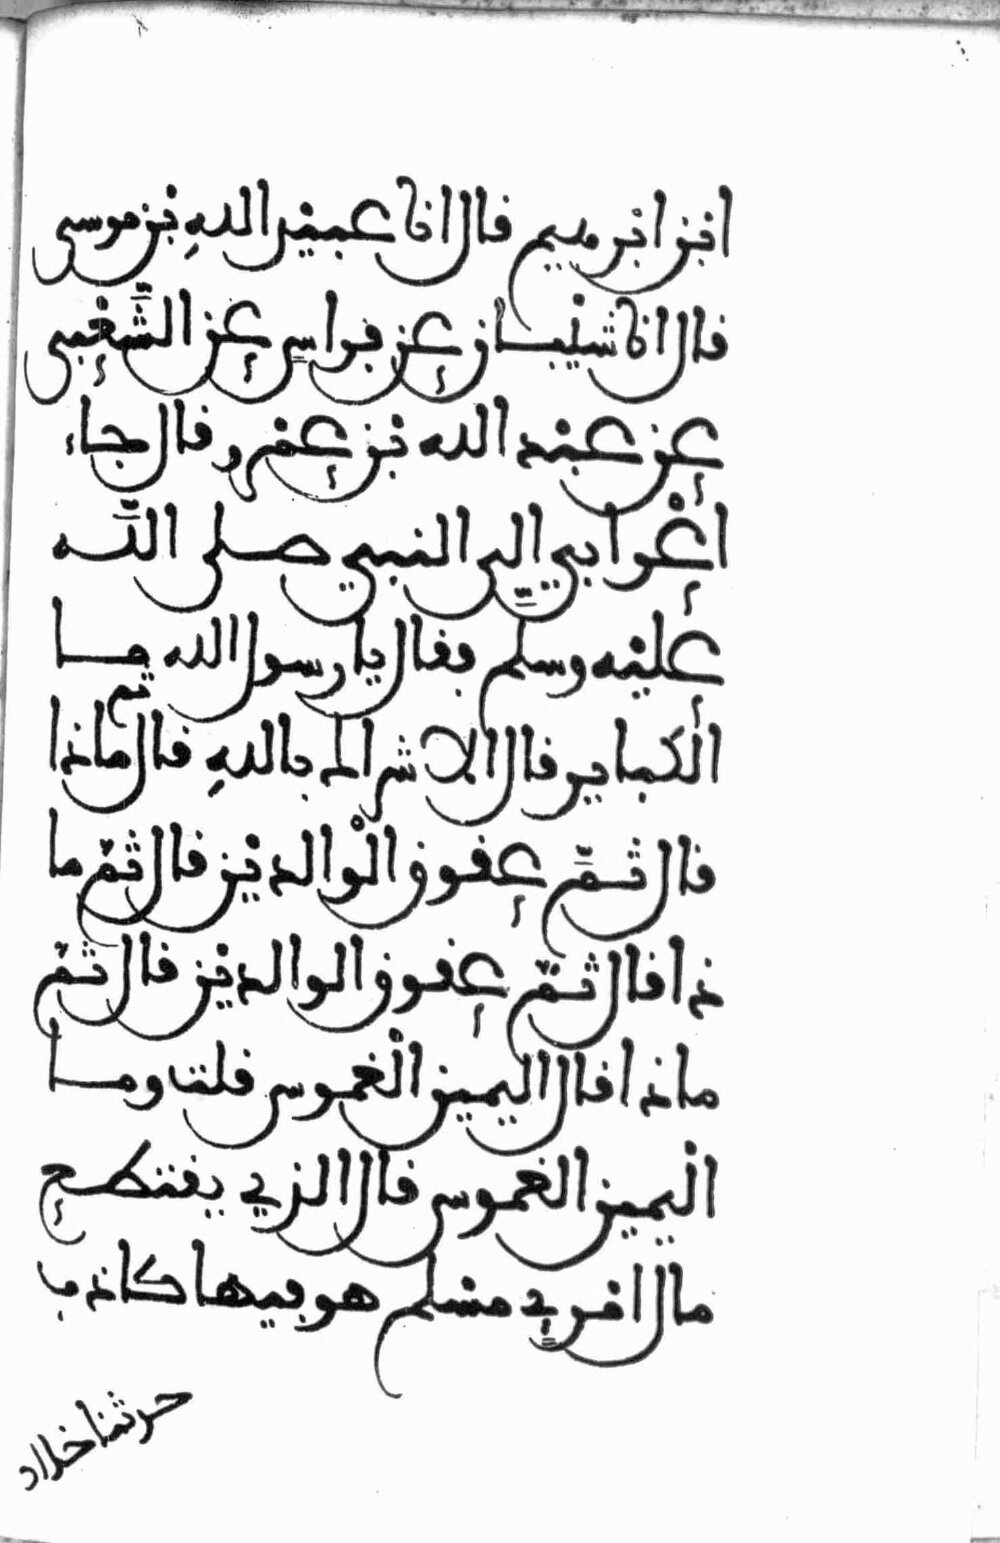 ابن ابرهيم قال انا عبيد اللهِ بن موسى
قال انا شيبان عن فراس عن الشَّعْبي
عن عبد الله بن عمرو قال جاء
اعْرابي إلى النبي صلى اللَّه
عليه وسلم فقال يا رسول الله ما
الكباير قال الاشراك باللهِ قال ثم ماذا
قال ثمّ عقوق الْوالدين قال ثمّ ما
ذا قال ثمّ عقوق الوالدين قال ثمّ
ماذا قال اليمين الْغموس قلت وما
الْيمين الغموس قال الذي يقتطع
مال امرئٍ مسلم هو فيها كاذب
حدثنا خلاد